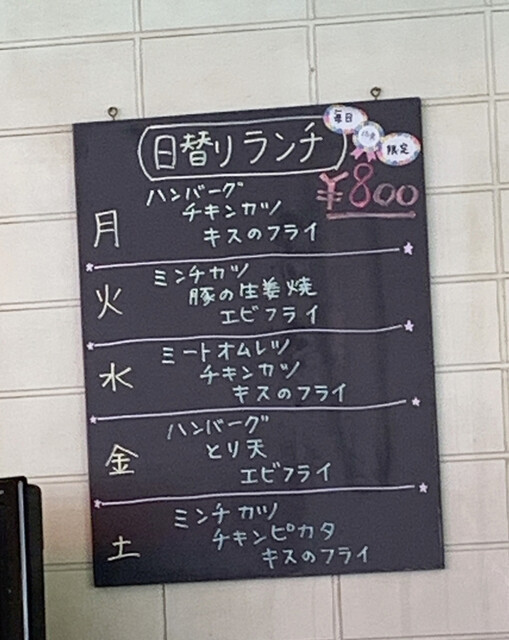 日替りランチ
毎日
限定
¥800
月
ハンバーグ
チキンカツ
キスのフライ
火
ミンチカツ
豚の生姜焼
エビフライ
水
ミートオムレツ
チキンカツ
キスのフライ
金
ハンバーグ
とり天
エビフライ
土
ミンチカツ
チキンピカタ
キスのフライ